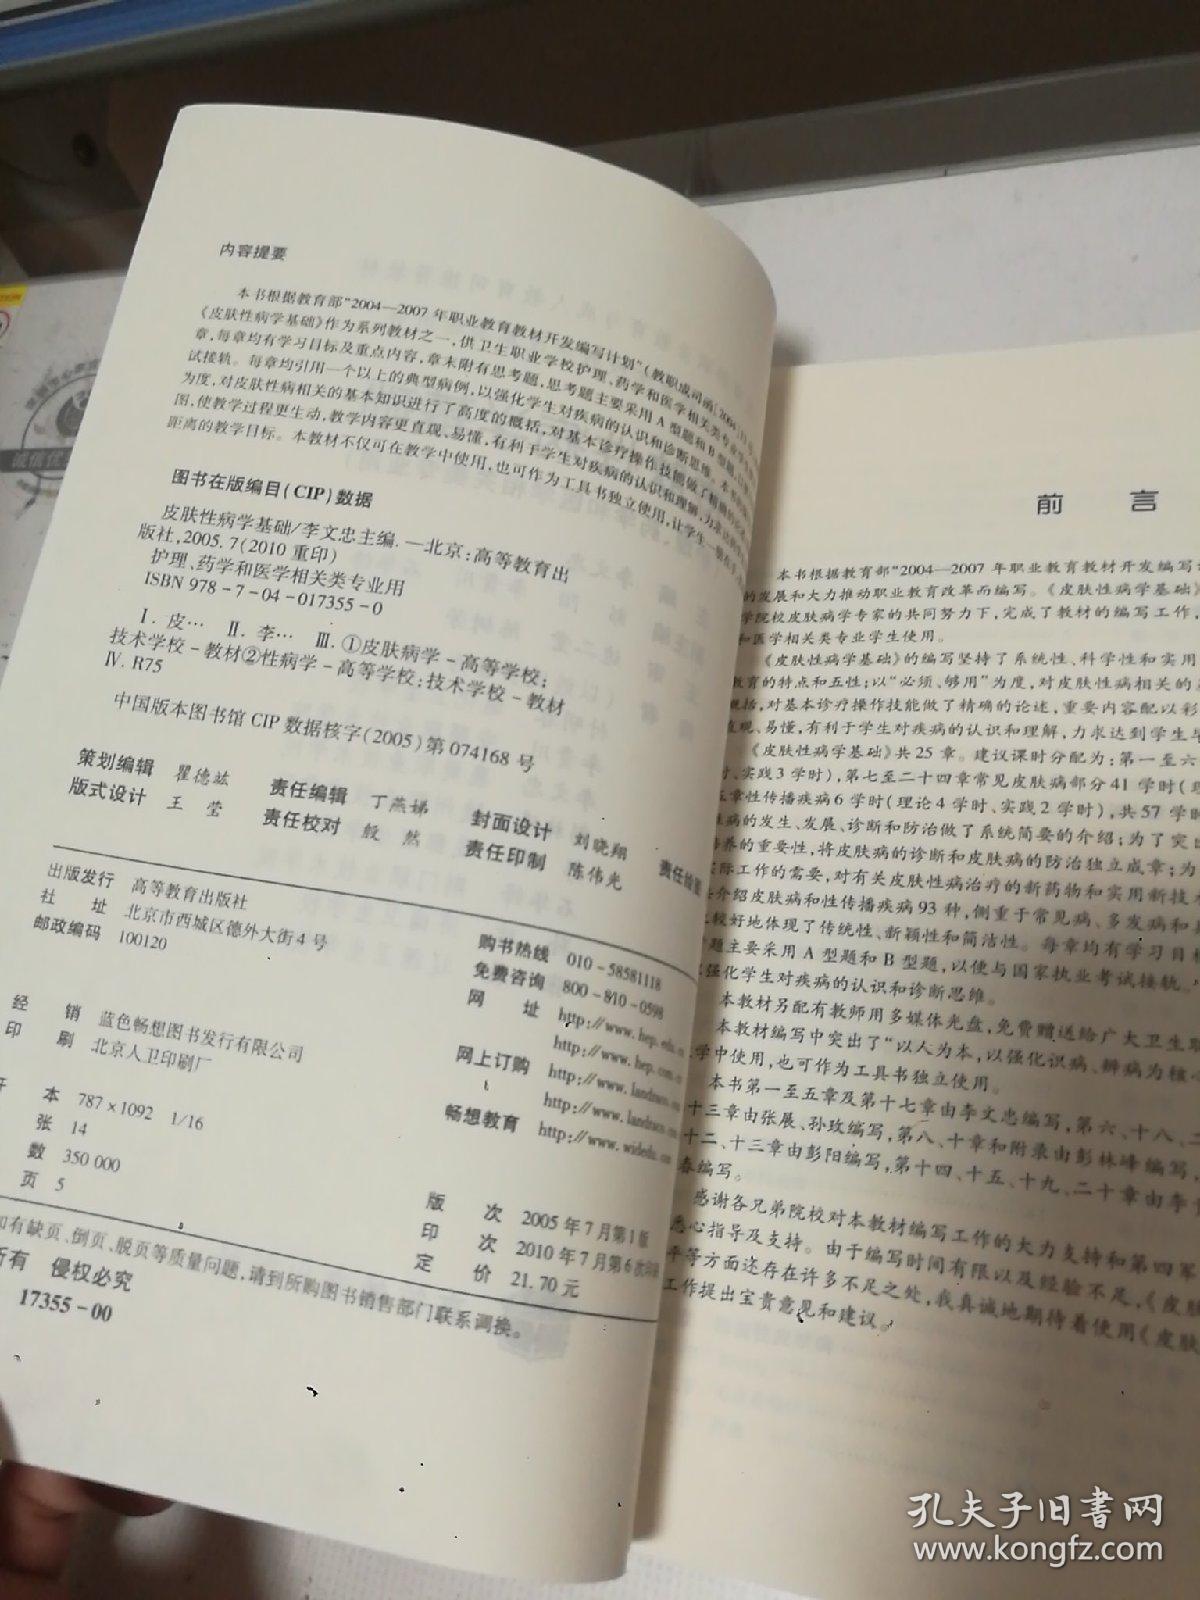 内容提要
本书根据教育部“2004—2007年职业教育教材开发编写计划”(教职成司函[2004]
《皮肤性病学基础》作为系列教材之一,供卫生职业学校护理、药学和医学相关类专业
章,每章均有学习目标及重点内容,章末附有思考题,思考题主要采用A型题和B型题
试接轨。每章均引用一个以上的典型病例,以强化学生对疾病的认识和诊断思维。本书
为度,对皮肤性病相关的基本知识进行了高度的概括,对基本诊疗操作技能做了精确的
图,使教学过程更生动,教学内容更直观、易懂,有利于学生对疾病的认识和理解,力求达到
距离的教学目标。本教材不仅可在教学中使用,也可作为工具书独立使用,让学生一
图书在版编目(CIP)数据
皮肤性病学基础/李文忠主编.—北京:高等教育出
版社,2005.7(2010重印)
护理、药学和医学相关类专业用
ISBN 978-7-04-017355-0
Ⅰ.皮… Ⅱ.李… Ⅲ.①皮肤病学-高等学校:
技术学校-教材②性病学-高等学校:技术学校-教材
Ⅳ.R75
中国版本图书馆CIP数据核字(2005)第074168号
策划编辑 瞿德竑 责任编辑 丁燕娣 封面设计 刘晓翔 责任绘图
版式设计 王莹 责任校对 殷然 责任印制 陈伟光
出版发行 高等教育出版社
社址 北京市西城区德外大街4号
邮政编码 100120
经销 蓝色畅想图书发行有限公司
印刷 北京人卫印刷厂
开本 787×1092 1/16
张 14
数 350 000
页 5
购书热线 010-58581118
免费咨询 800-810-0598
网址 http://www.hep.edu.c
http://www.hep.com.c
网上订购 http://www.landraco.co
http://www.landraco.co
畅想教育 http://www.widedu.co
版次 2005年7月第1版
印次 2010年7月第6次印刷
定价 21.70元
如有缺页、倒页、脱页等质量问题,请到所购图书销售部门联系调换。
所有 侵权必究
17355-00
前言
本书根据教育部“2004—2007年职业教育教材开发编写
的发展和大力推动职业教育改革而编写。《皮肤性病学基础》
学院校皮肤病学专家的共同努力下,完成了教材的编写工作,
和医学相关类专业学生使用。
《皮肤性病学基础》的编写坚持了系统性、科学性和实用
教育的特点和五性;以“必须、够用”为度,对皮肤性病相关的
概括,对基本诊疗操作技能做了精确的论述,重要内容配以彩
直观、易懂,有利于学生对疾病的认识和理解,力求达到学生
《皮肤性病学基础》共25章。建议课时分配为:第一至六
时、实践3学时),第七至二十四章常见皮肤病部分41学时(理
五章性传播疾病6学时(理论4学时、实践2学时),共57学时
性病的发生、发展、诊断和防治做了系统简要的介绍;为了突出
培养的重要性,将皮肤病的诊断和皮肤病的防治独立成章;为
实际工作的需要,对有关皮肤性病治疗的新药物和实用新技
共介绍皮肤病和性传播疾病93种,侧重于常见病、多发病和
比较好地体现了传统性、新颖性和简洁性。每章均有学习目标
题主要采用A型题和B型题,以便与国家执业考试接轨。
强化学生对疾病的认识和诊断思维。
本教材另配有教师用多媒体光盘,免费赠送给广大卫生职
本教材编写中突出了“以人为本,以强化识病、辨病为核心
学中使用,也可作为工具书独立使用。
本书第一至五章及第十七章由李文忠编写,第六、十八、二
十三章由张展、孙玫编写,第八、十章和附录由彭林峰编写,
十二、十三章由彭阳编写,第十四、十五、十九、二十章由李
春编写。
感谢各兄弟院校对本教材编写工作的大力支持和第四军
悉心指导及支持。由于编写时间有限以及经验不足,《皮肤
平等方面还存在许多不足之处,我真诚地期待着使用《皮肤
工作提出宝贵意见和建议。
孔夫子旧书网
www.kongfz.com